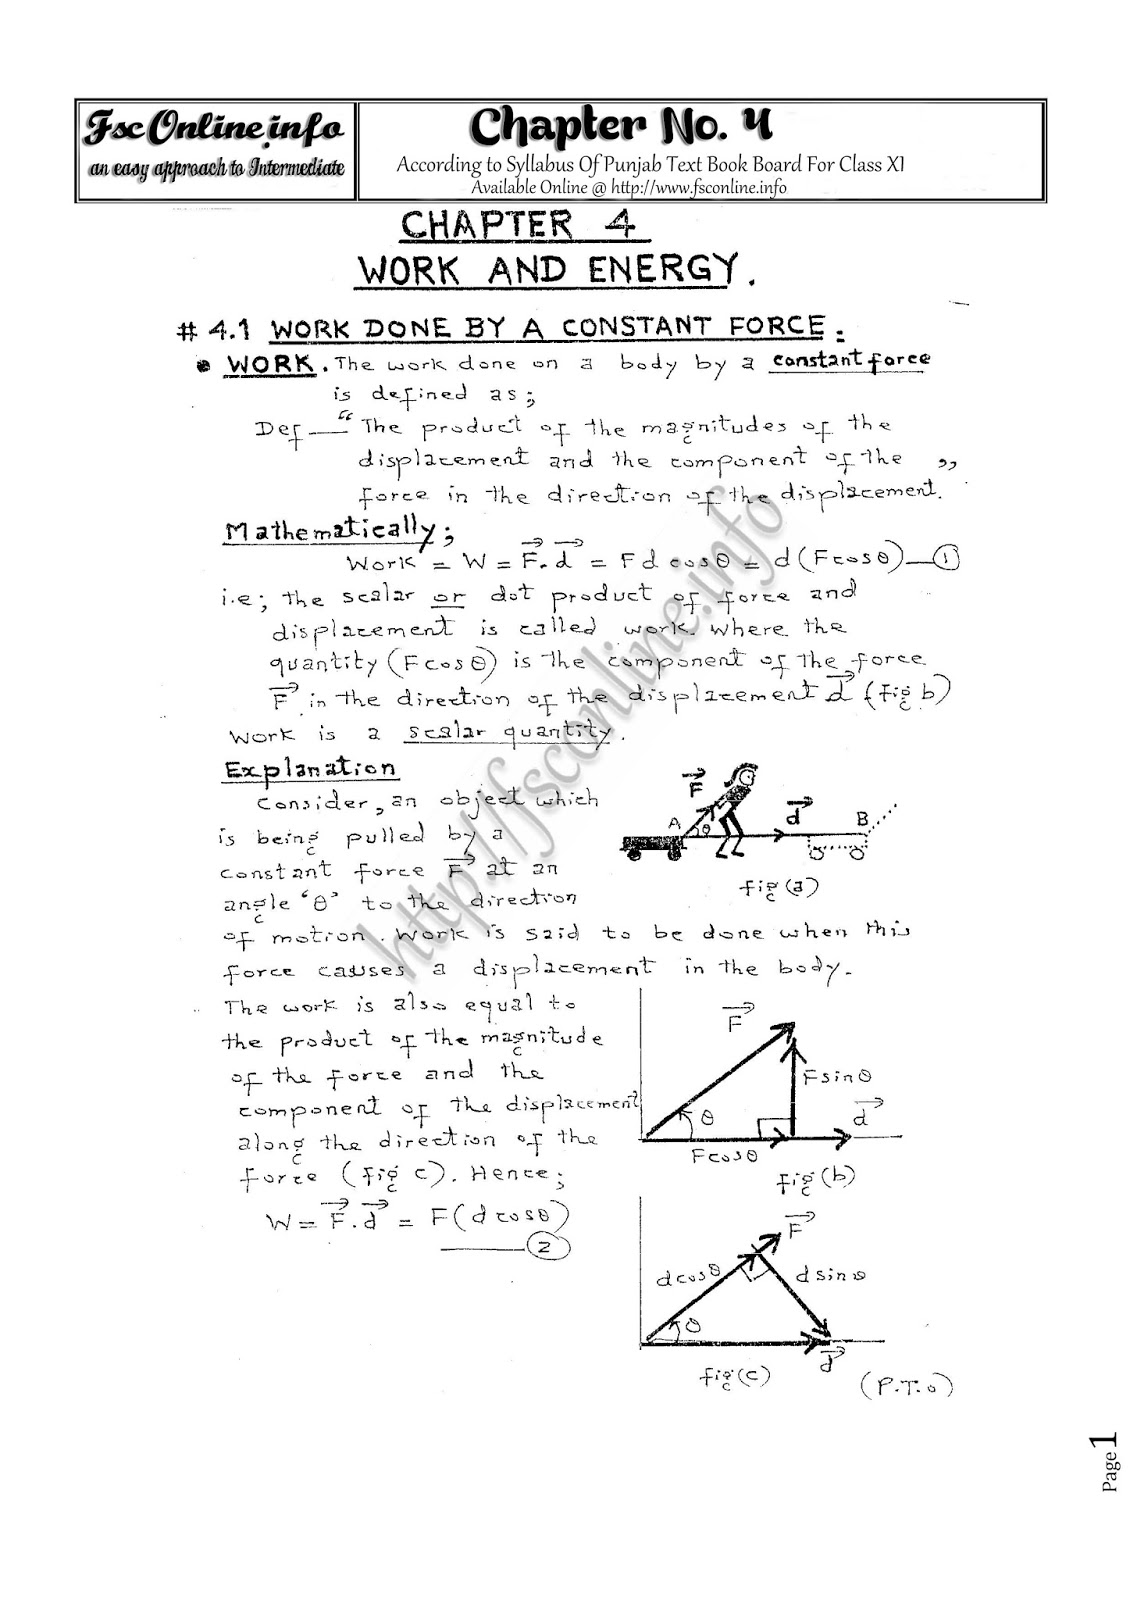 Fsc Online.info
an easy approach to Intermediate
Chapter No. 4
According to Syllabus Of Punjab Text Book Board For Class XI
Available Online @ http://www.fsconline.info
CHAPTER 4
WORK AND ENERGY.
# 4.1 WORK DONE BY A CONSTANT FORCE.
• WORK. The work done on a body by a constant force
is defined as;
Def — “The product of the magnitudes of the
displacement and the component of the
force in the direction of the displacement.”
Mathematically;
Work = W = F⃗.d⃗ = Fd cosθ = d(Fcosθ) — ①
i.e; the scalar or dot product of force and
displacement is called work. Where the
quantity (Fcosθ) is the component of the force
F⃗ in the direction of the displacement d⃗ (fig b)
Work is a scalar quantity.
Explanation
Consider, an object which
is being pulled by a
constant force F⃗ at an
angle ‘θ’ to the direction
of motion. Work is said to be done when this
force causes a displacement in the body.
F⃗
A
θ
d⃗
B
fig(a)
The work is also equal to
the product of the magnitude
of the force and the
component of the displacement
along the direction of the
force (fig c). Hence;
W = F⃗.d⃗ = F(d cosθ)
— ②
F⃗
Fsinθ
θ
d⃗
Fcosθ
fig(b)
F⃗
dcosθ
dsinθ
θ
d⃗
fig(c)
(P.T.O)
http://fsconline.info
Page 1